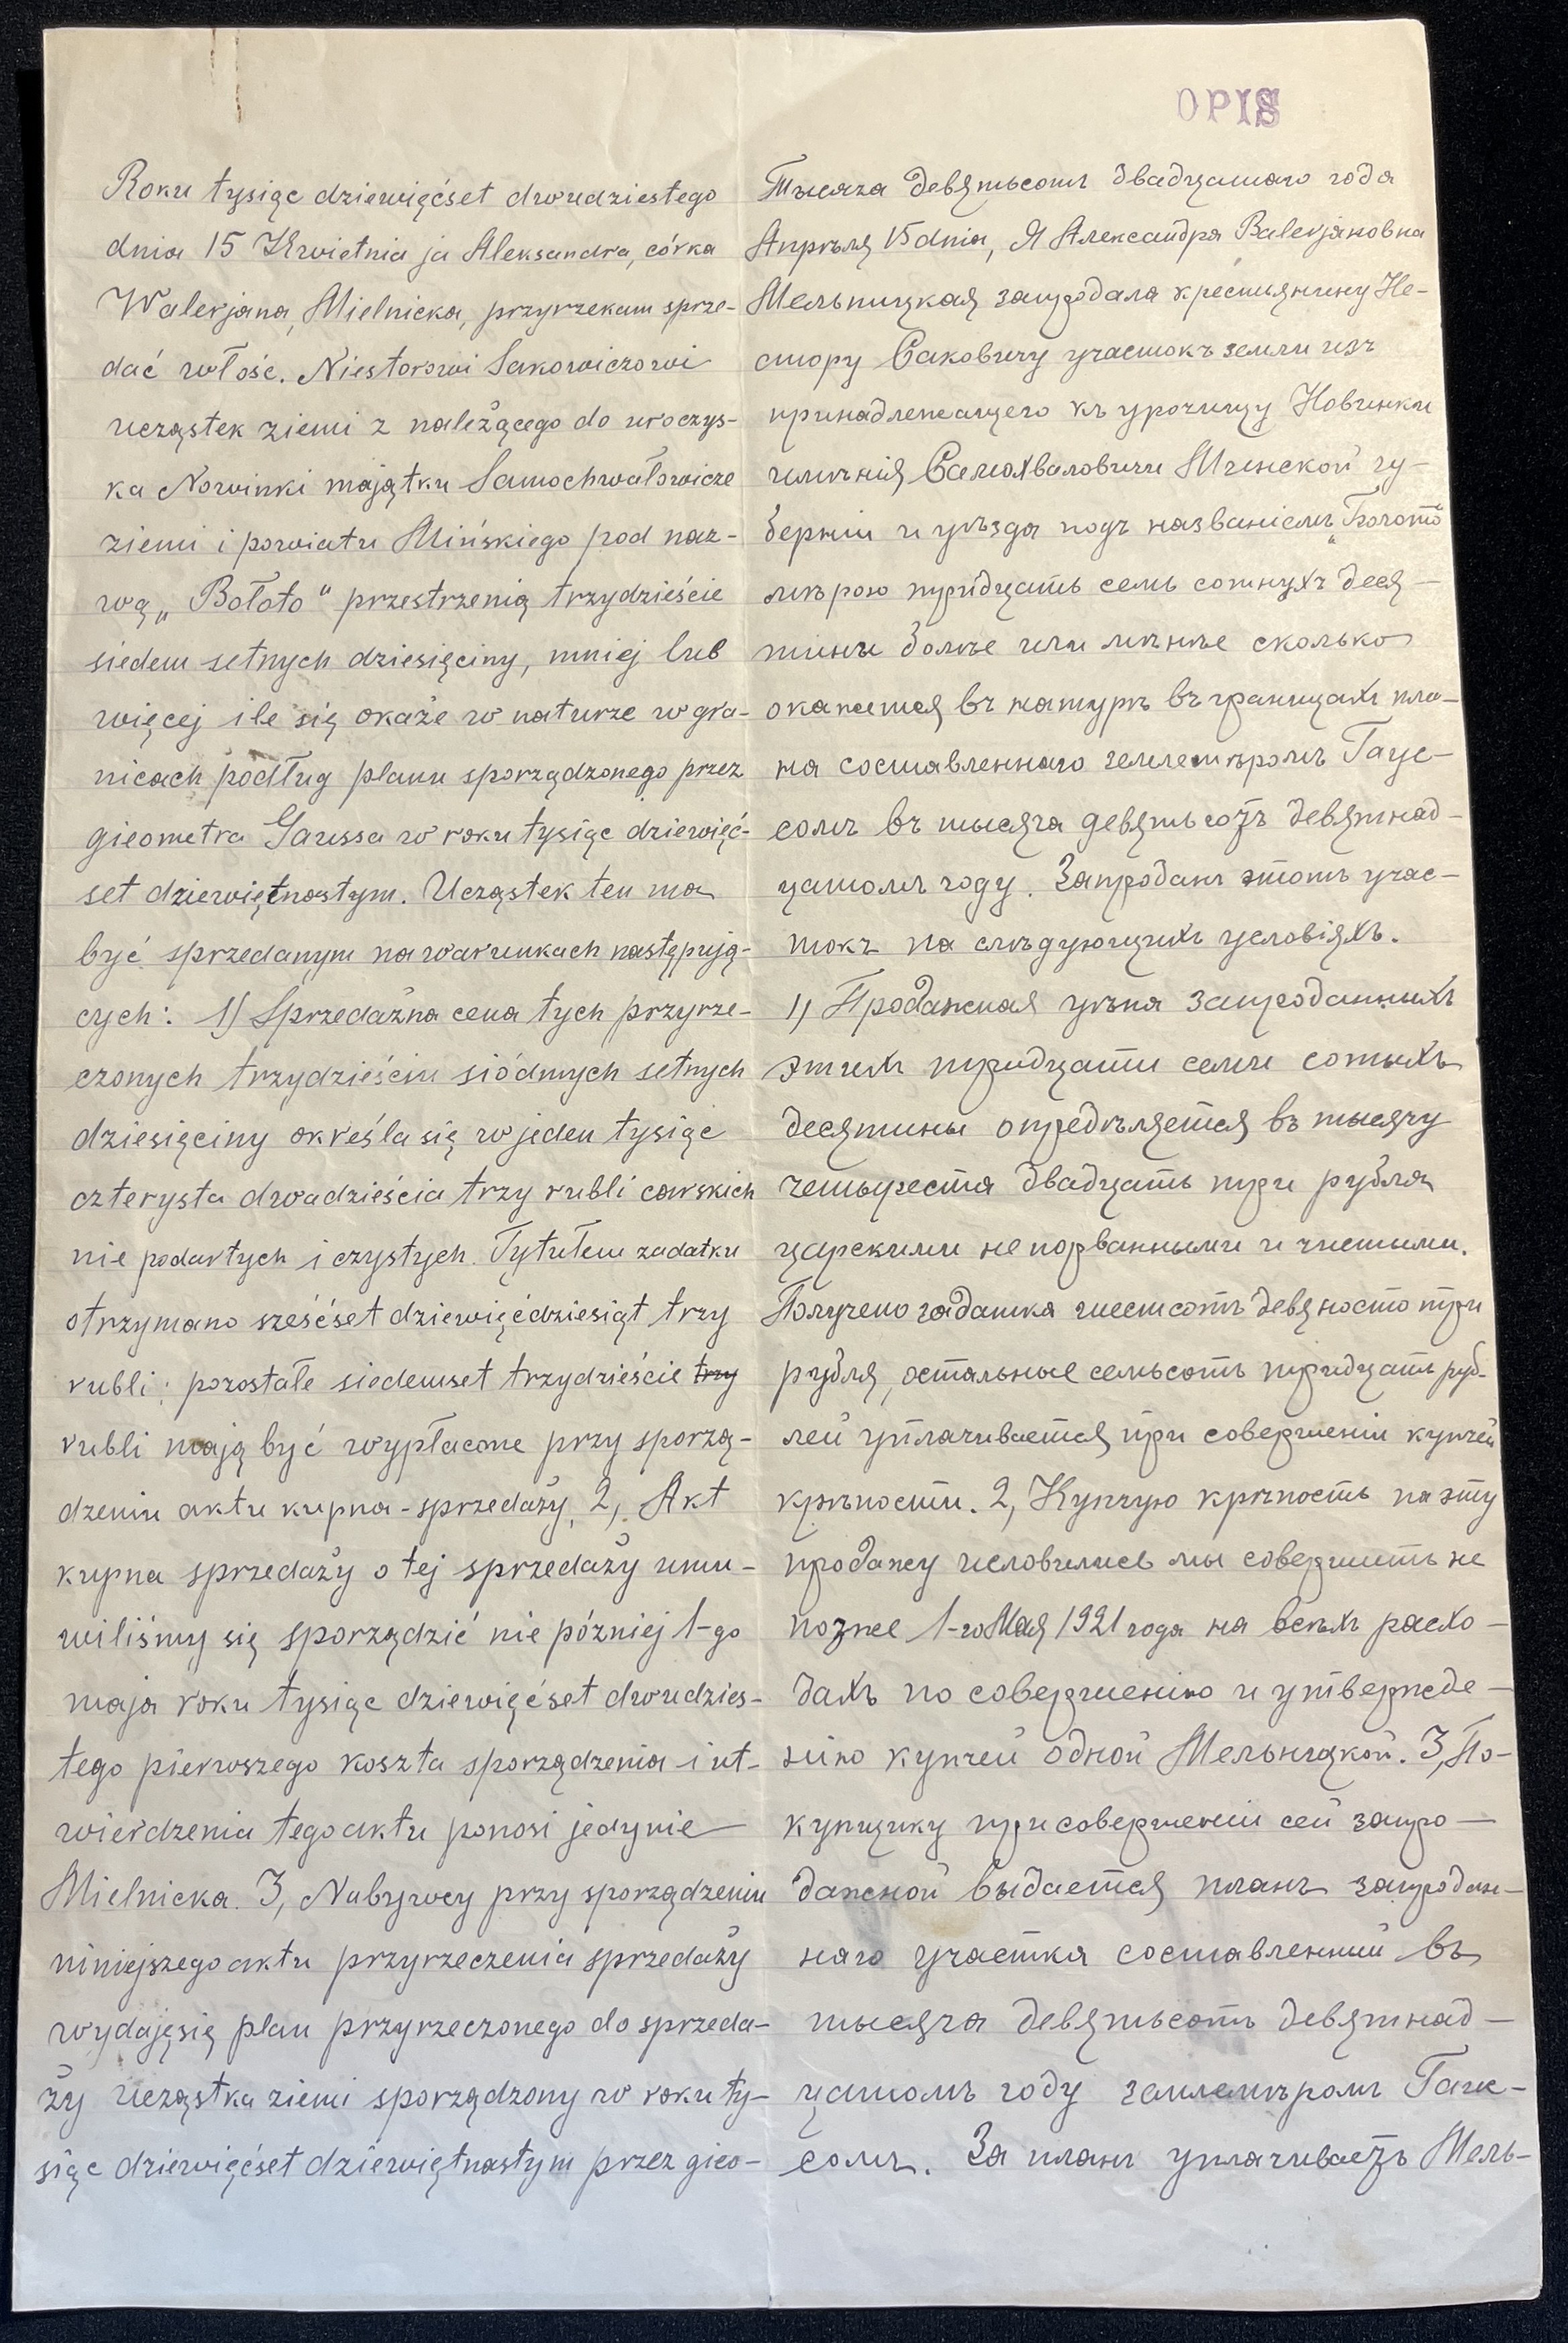 OPIS
Roku tysiąc dziewięćset dwudziestego
dnia 15 Kwietnia ja Aleksandra, córka
Walerjana, Mielnicka, przyrzekam sprze-
dać włość. Niestorowi Sakowiczowi
ucząstek ziemi z należącego do uroczys-
ka Nowinki majątku Samochwałowicze
ziemi i powiatu Mińskiego pod naz-
wą „Bołoto" przestrzenią trzydzieście
siedem setnych dziesięciny, mniej lub
więcej ile się okaże w naturze w gra-
nicach podług planu sporządzonego przez
gieometra Gaussa w roku tysiąc dziewięć-
set dziewiętnastym. Ucząstek ten ma
być sprzedanym na warunkach następują-
cych: 1) Sprzedażna cena tych przyrze-
czonych trzydzieściu siódmych setnych
dziesięciny określa się w jeden tysiąc
czterysta dwadzieścia trzy rubli carskich
nie podartych i czystych. Tytułem zadatku
otrzymano sześćset dziewięćdziesiąt trzy
rubli; pozostałe siedemset trzydzieście trzy
rubli mają być wypłacone przy sporzą-
dzeniu aktu kupna-sprzedaży, 2, Akt
kupna sprzedaży o tej sprzedaży umu-
wiliśmy się sporządzić nie później 1-go
maja roku tysiąc dziewięćset dwudzies-
tego pierwszego koszta sporządzenia i ut-
wierdzenia tego aktu ponosi jedynie
Mielnicka. 3, Nabywcy przy sporządzeniu
niniejszego aktu przyrzeczenia sprzedaży
wydaję się plan przyrzeczonego do sprzeda-
ży ucząstka ziemi sporządzony w roku ty-
siąc dziewięćset dziewiętnastym przez gieo-
Тысяча девятьсотъ двадцатаго года
Апрѣля 15 dnia, Я Александра Валерjановна
Мельницкая запродала крестьянину Не-
стору Саковичу участокъ земли изъ
принадлежащего къ урочищу Новинки
имѣнія Самохваловичи Минской гу-
берніи и уѣзда подъ названіемъ „Болото
мѣрою тридцать семь сотныхъ деся-
тины болѣе или мѣнѣе сколько
окажется въ натурѣ въ границахъ пла-
на составленнаго землемѣромъ Гаус-
сомъ въ тысяча девятьсотъ девятнад-
цатомъ году. Запроданъ этотъ учас-
токъ на слѣдующихъ условіяхъ.
1) Продажная цѣна запроданныхъ
этихъ тридцати семи сотыхъ
десятины опредѣляется въ тысячу
четыреста двадцать три рубля
царскими не порванными и чистыми.
Получено задатка шестсотъ девяносто три
рубля, остальные семьсотъ тридцать руб-
лей уплачивается при совершеніи купчей
крѣпости. 2, Купчую крѣпость на эту
продажу условились мы совершить не
позже 1-го Мая 1921 года на всѣхъ расхо-
дахъ по совершенію и утвержде-
нію купчей одной Мельницкой. 3, По-
купщику при совершеніи сей запро-
дажной выдается планъ запродан-
наго участка составленный въ
тысяча девятьсотъ девятнад-
цатомъ году землемѣромъ Гаус-
сомъ. За планъ уплачиваетъ Мель-